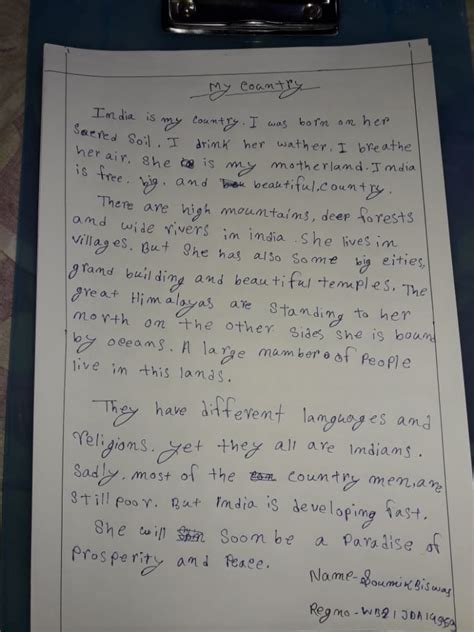 My Country
India is my country. I was born on her
Sacred Soil. I drink her wather. I breathe
her air. She is my motherland. India
is free. big. and beautiful. country.
There are high mountains, deep forests
and wide rivers in india. She lives in
villages. But She has also Some big cities,
grand building and beautiful temples. The
great Himalayas are Standing to her
north on the other sides she is bound
by oceans. A large number of People
live in this lands.
They have different languages and
religions. yet they all are Indians.
Sadly, most of the country men, are
Still poor. But India is developing fast.
She will Soon be a Paradise of
Prosperity and Peace.
Name-Soumik Biswas
Regno-